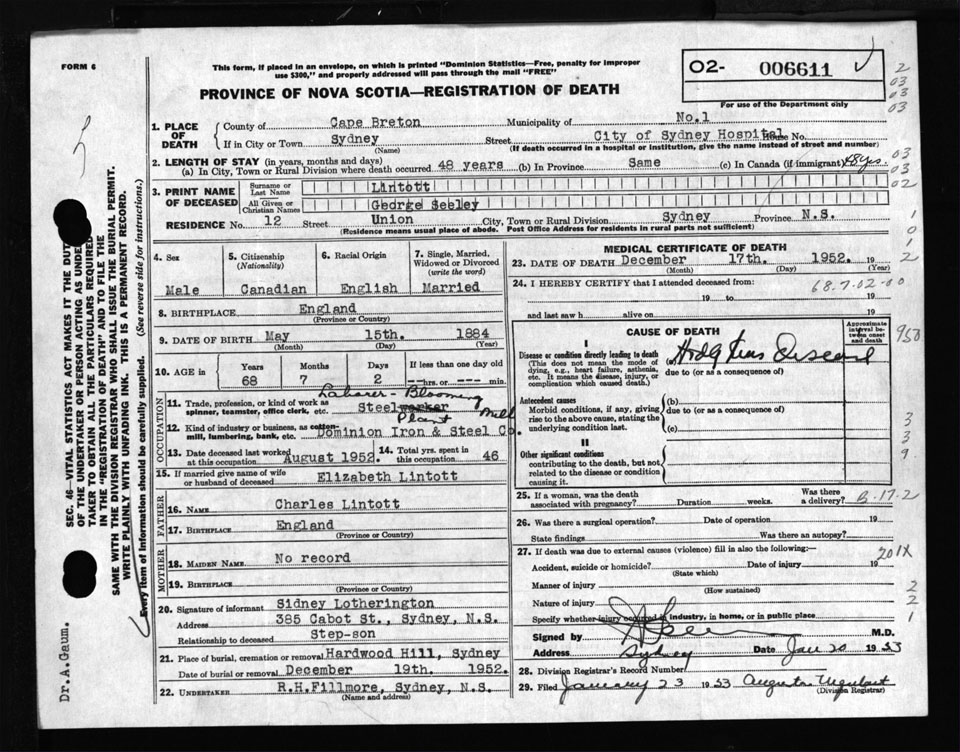 FORM 6
This form, if placed in an envelope, on which is printed "Dominion Statistics—Free, penalty for improper
use $300," and properly addressed will pass through the mail "FREE"
PROVINCE OF NOVA SCOTIA—REGISTRATION OF DEATH
O2- 006611
For use of the Department only
1. PLACE OF DEATH
County of Cape Breton Municipality of No.1
If in City or Town Sydney Street City of Sydney Hospital House No.
(Name) (If death occurred in a hospital or institution, give the name instead of street and number)
2. LENGTH OF STAY (in years, months and days)
(a) In City, Town or Rural Division where death occurred 48 years (b) In Province Same (c) In Canada (if immigrant) 48yrs
3. PRINT NAME OF DECEASED
Surname or Last Name Lintott
All Given or Christian Names George Seeley
RESIDENCE No. 12 Street Union City, Town or Rural Division Sydney Province N.S.
(Residence means usual place of abode. Post Office Address for residents in rural parts not sufficient)
4. Sex
Male
5. Citizenship (Nationality)
Canadian
6. Racial Origin
English
7. Single, Married, Widowed or Divorced (write the word)
Married
8. BIRTHPLACE England
(Province or Country)
9. DATE OF BIRTH May 15th. 1884
(Month) (Day) (Year)
10. AGE in Years Months Days If less than one day old
68 7 2 --- hrs. or --- min.
OCCUPATION
Laborer- Blooming Mill
11. Trade, profession, or kind of work as
spinner, teamster, office clerk, etc. Steelworker
Plant
12. Kind of industry or business, as cotton-
mill, lumbering, bank, etc. Dominion Iron & Steel Co.
13. Date deceased last worked at this occupation August 1952.
14. Total yrs. spent in this occupation 46
15. If married give name of wife
or husband of deceased Elizabeth Lintott
FATHER
16. NAME Charles Lintott
17. BIRTHPLACE England
(Province or Country)
MOTHER
18. MAIDEN NAME No record
19. BIRTHPLACE
(Province or Country)
20. Signature of informant Sidney Lotherington
Address 385 Cabot St., Sydney, N.S.
Relationship to deceased Step-son
21. Place of burial, cremation or removal Hardwood Hill, Sydney
Date of burial or removal December 19th. 1952.
22. UNDERTAKER R.H.Fillmore, Sydney, N.S.
(Name and address)
MEDICAL CERTIFICATE OF DEATH
23. DATE OF DEATH December 17th. 1952. 19
(Month) (Day) (Year)
24. I HEREBY CERTIFY that I attended deceased from:
68.7.02-00
19 to 19
and last saw h alive on 19
CAUSE OF DEATH
Approximate interval between onset and death
I
Disease or condition directly leading to death (a) Hodgkins Disease
(This does not mean the mode of
dying, e.g., heart failure, asthenia,
etc. It means the disease, injury, or
complication which caused death.)
due to (or as a consequence of)
Antecedent causes
Morbid conditions, if any, giving
rise to the above cause, stating the
underlying condition last.
(b)
due to (or as a consequence of)
(c)
II
Other significant conditions
contributing to the death, but not
related to the disease or condition
causing it.
25. If a woman, was the death
associated with pregnancy? Duration weeks. Was there a delivery?
B-17-2
26. Was there a surgical operation? Date of operation 19
State findings Was there an autopsy?
27. If death was due to external causes (violence) fill in also the following:—
201X
Accident, suicide or homicide? Date of injury 19
(State which)
Manner of injury
(How sustained)
Nature of injury
Specify whether injury occurred in industry, in home, or in public place
Signed by M.D.
Address Sydney Date Jan 20 1953
28. Division Registrar's Record Number
29. Filed January 23 1953 Augusta Urquhart
(Division Registrar)
SEC. 46—VITAL STATISTICS ACT MAKES IT THE DUTY
OF THE UNDERTAKER OR PERSON ACTING AS UNDER-
TAKER TO OBTAIN ALL THE PARTICULARS REQUIRED
IN THE "REGISTRATION OF DEATH" AND TO FILE THE
SAME WITH THE DIVISION REGISTRAR WHO SHALL ISSUE THE BURIAL PERMIT.
WRITE PLAINLY WITH UNFADING INK. THIS IS A PERMANENT RECORD.
Every item of Information should be carefully supplied. (See reverse side for instructions.)
Dr.A.Gaum.
2
03
03
03
03
03
02
1
0
1
2
950
3
3
9
2
2
1